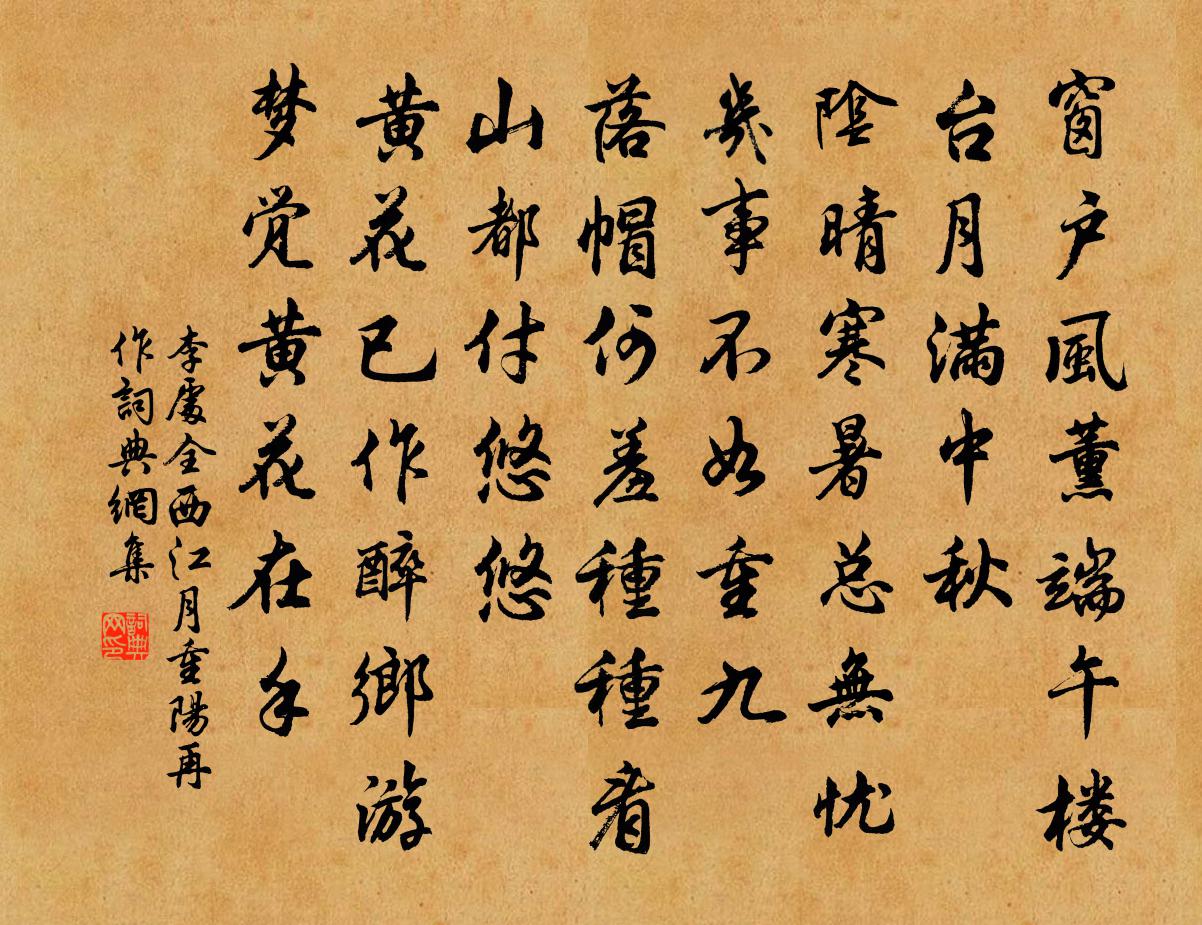 窗户風薰端午楼
台月满中秋
陰晴寒暑总無忧
幾事不如重九
落帽何羞種種看
山都付悠悠
黄花已作醉鄉游
梦觉黄花在手
李處全西江月重陽再
作詞典網集
詞典
网印